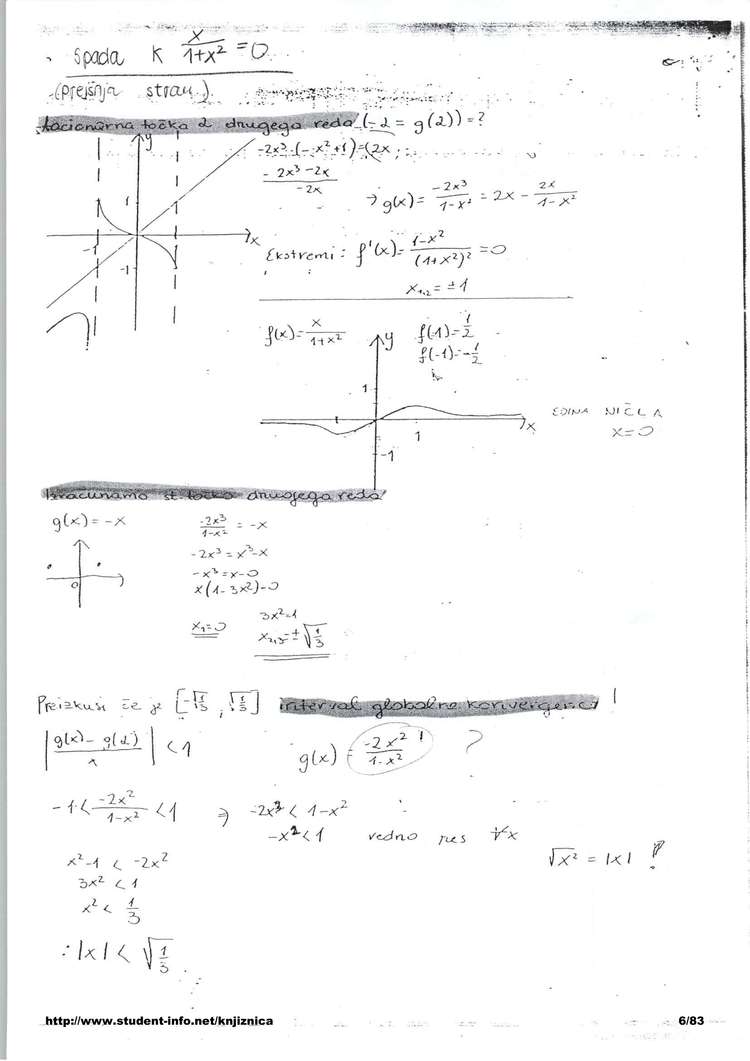 · Spada K x/(1+x²) = 0
(prejšnja stran).
tacionarna točka 2 drugega reda (-2 = g(2)) = ?
-2x³ : (-x²+1) = (2x
-2x³-2x
-2x
→ g(x) = -2x³/(1-x²) = 2x - 2x/(1-x²)
y
1
-1
-1
x
Ekstremi: f'(x) = (1-x²)/(1+x²)² = 0
x₁,₂ = ±1
f(x) = x/(1+x²)
f(1) = 1/2
f(-1) = -1/2
y
1
1
-1
x
EDINA NIČLA
x=0
Izračunamo st. točko drugega reda!
g(x) = -x
0
-2x³/(1-x²) = -x
-2x³ = x³-x
-x³ = x-0
x(1-3x²)-0
x₁=0
3x²=1
x₂,₃=±√(1/3)
Preizkusi če je [-√(1/3), √(1/3)] interval globalne konvergenci!
|(g(x) - g(2))/x| < 1
g(x) = -2x²/(1-x²) ?
-1 < -2x²/(1-x²) < 1 ⇒ -2x³ < 1-x²
-x² < 1 vedno res ∀x
x²-1 < -2x²
3x² < 1
x² < 1/3
√x² = |x| !
∴ |x| < √(1/3)
http://www.student-info.net/knjiznica
6/83